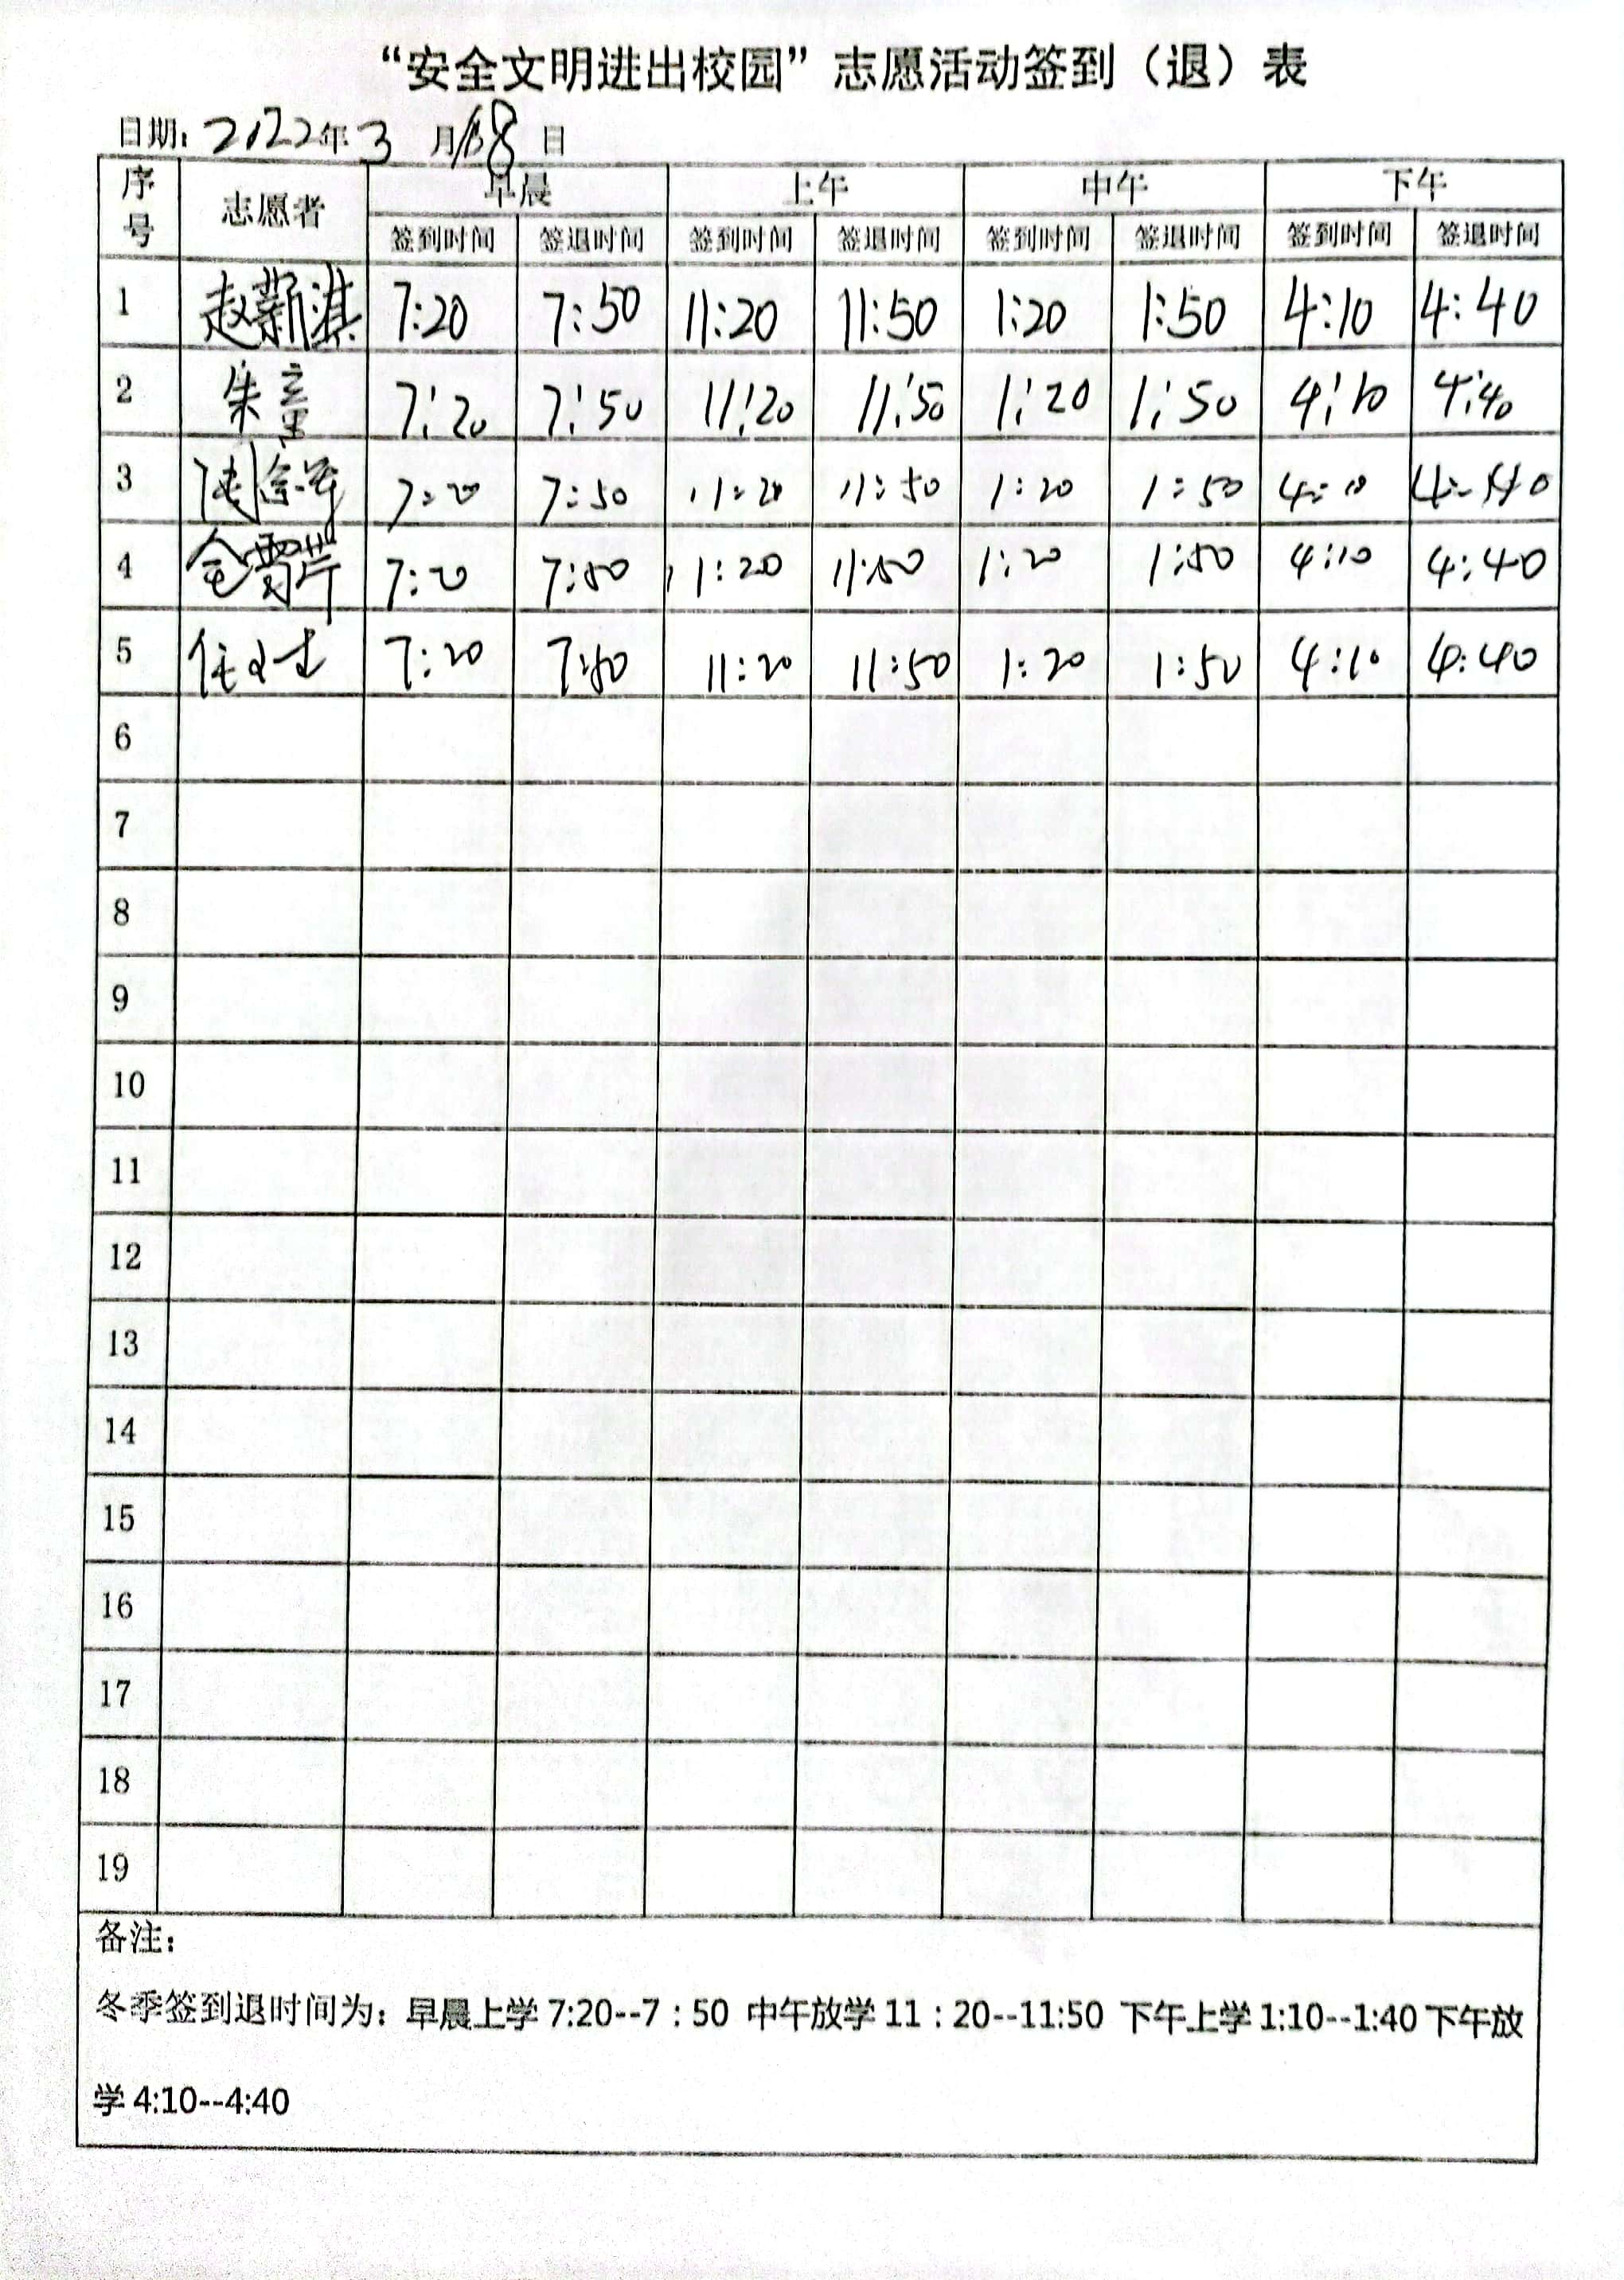 “安全文明进出校园”志愿活动签到（退）表
日期：2022年3月18日
序号 志愿者 早晨 上午 中午 下午
签到时间 签退时间 签到时间 签退时间 签到时间 签退时间 签到时间 签退时间
1 赵新淇 7:20 7:50 11:20 11:50 1:20 1:50 4:10 4:40
2 朱童 7:20 7:50 11:20 11:50 1:20 1:50 4:10 4:40
3 7:20 7:50 11:20 11:50 1:20 1:50 4:10 4:40
4 7:20 7:50 11:20 11:50 1:20 1:50 4:10 4:40
5 7:20 7:50 11:20 11:50 1:20 1:50 4:10 4:40
6
7
8
9
10
11
12
13
14
15
16
17
18
19
备注：
冬季签到退时间为：早晨上学7:20--7：50 中午放学11：20--11:50 下午上学1:10--1:40下午放
学4:10--4:40